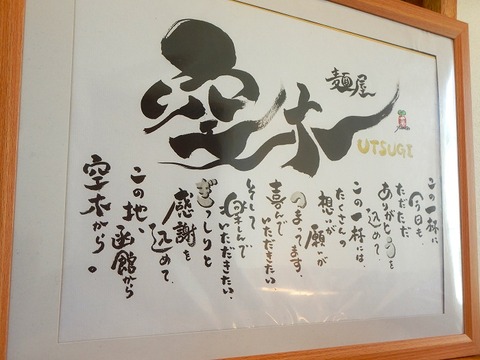 麺屋
空木
UTSUGI
この一杯に
今日も、
ただただ
ありがとうを
込めて、
この一杯には、
たくさんの
想いが
願いが
つまってます。
喜んで
いただきたい、
そして
楽しんで
いただきたい、
ぎっしりと
感謝を
込めて、
この地、函館から
空木から。